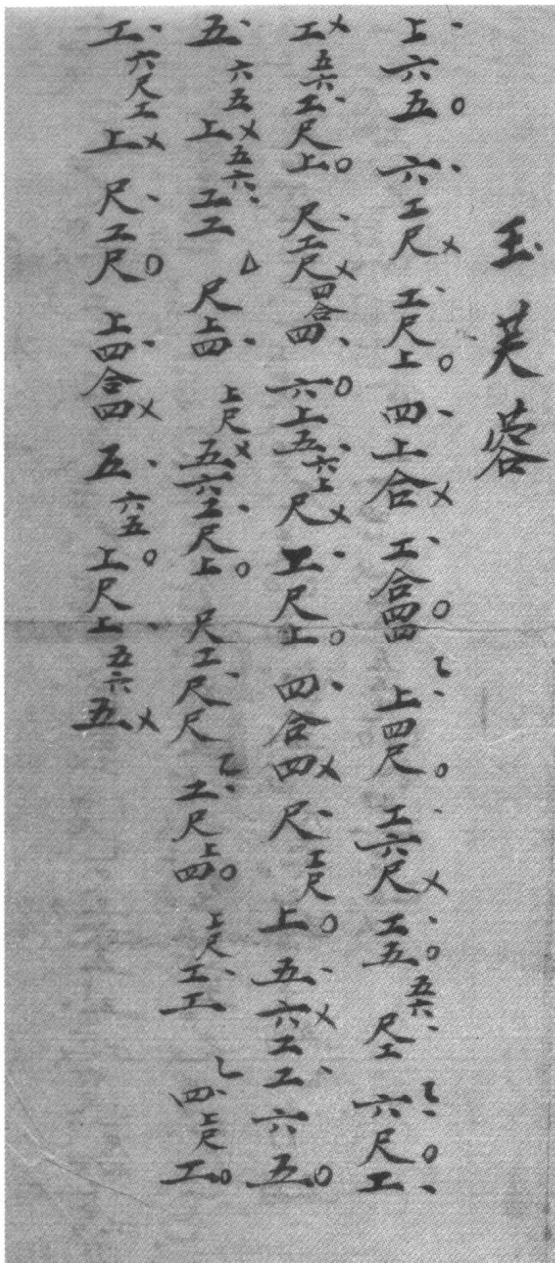 玉芙蓉
上、六五○六、工尺×工、尺上○四、上合×工、合四四○乙、上四尺○工、六尺×工、五○五六、尺工六乙、尺○工、
工×五六工、尺上○尺、工尺×四合四、六○上五、六上尺×工、尺上○四、合四×尺、工尺上○五、六×工工、六五○
五、六五上×五六、工工△尺上四、上尺五×六工、尺上○尺工、尺尺乙、工尺上四○上尺工、工乙四、上尺工○
工、六尺工上×尺、工尺○上四、合四×五、六五上○尺上、五六五×